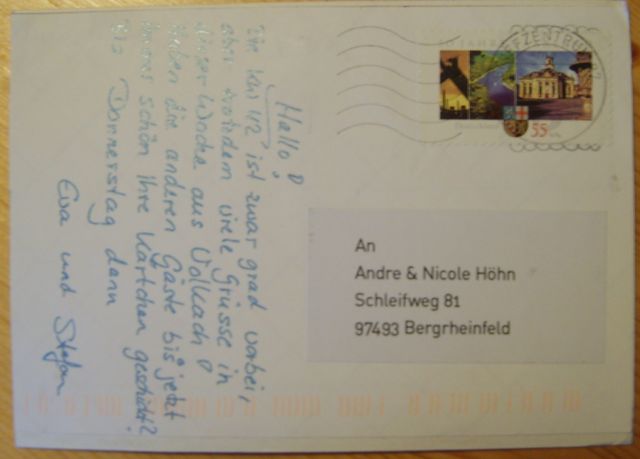 Hallo!
Die KW 12 ist zwar grad vorbei,
aber trotzdem viele Grüsse in
dieser Woche aus Volkach!
Haben die anderen Gäste bis jetzt
immer schön ihre Kärtchen geschickt?
Bis Donnerstag dann
Eva und Stefan
EFZENTRUM
55
An
Andre & Nicole Höhn
Schleifweg 81
97493 Bergrheinfeld